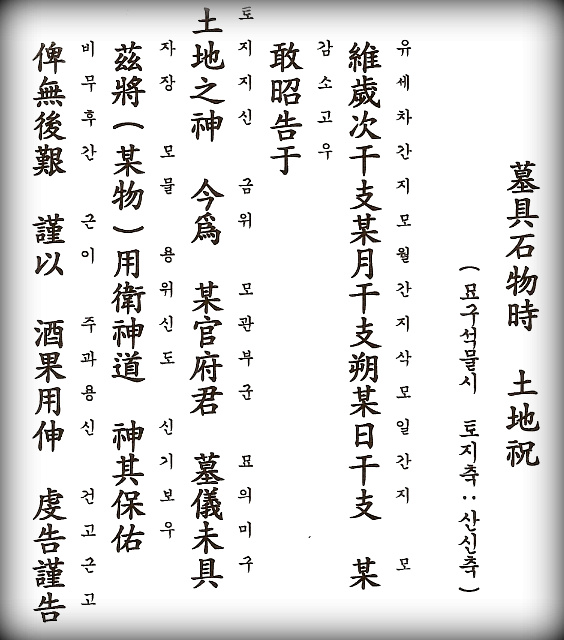 墓具石物時 土地祝
(묘구석물시 토지축:산신축)
유세차간지모월간지삭모일간지 모
維歲次干支某月干支朔某日干支 某
감소고우
敢昭告于
토지지신 금위 모관부군 묘의미구
土地之神 今爲 某官府君 墓儀未具
자장 모물 용위신도 신기보우
茲將(某物)用衛神道 神其保佑
비무후간 근이 주과용신 건고근고
俾無後艱 謹以 酒果用伸 虔告謹告